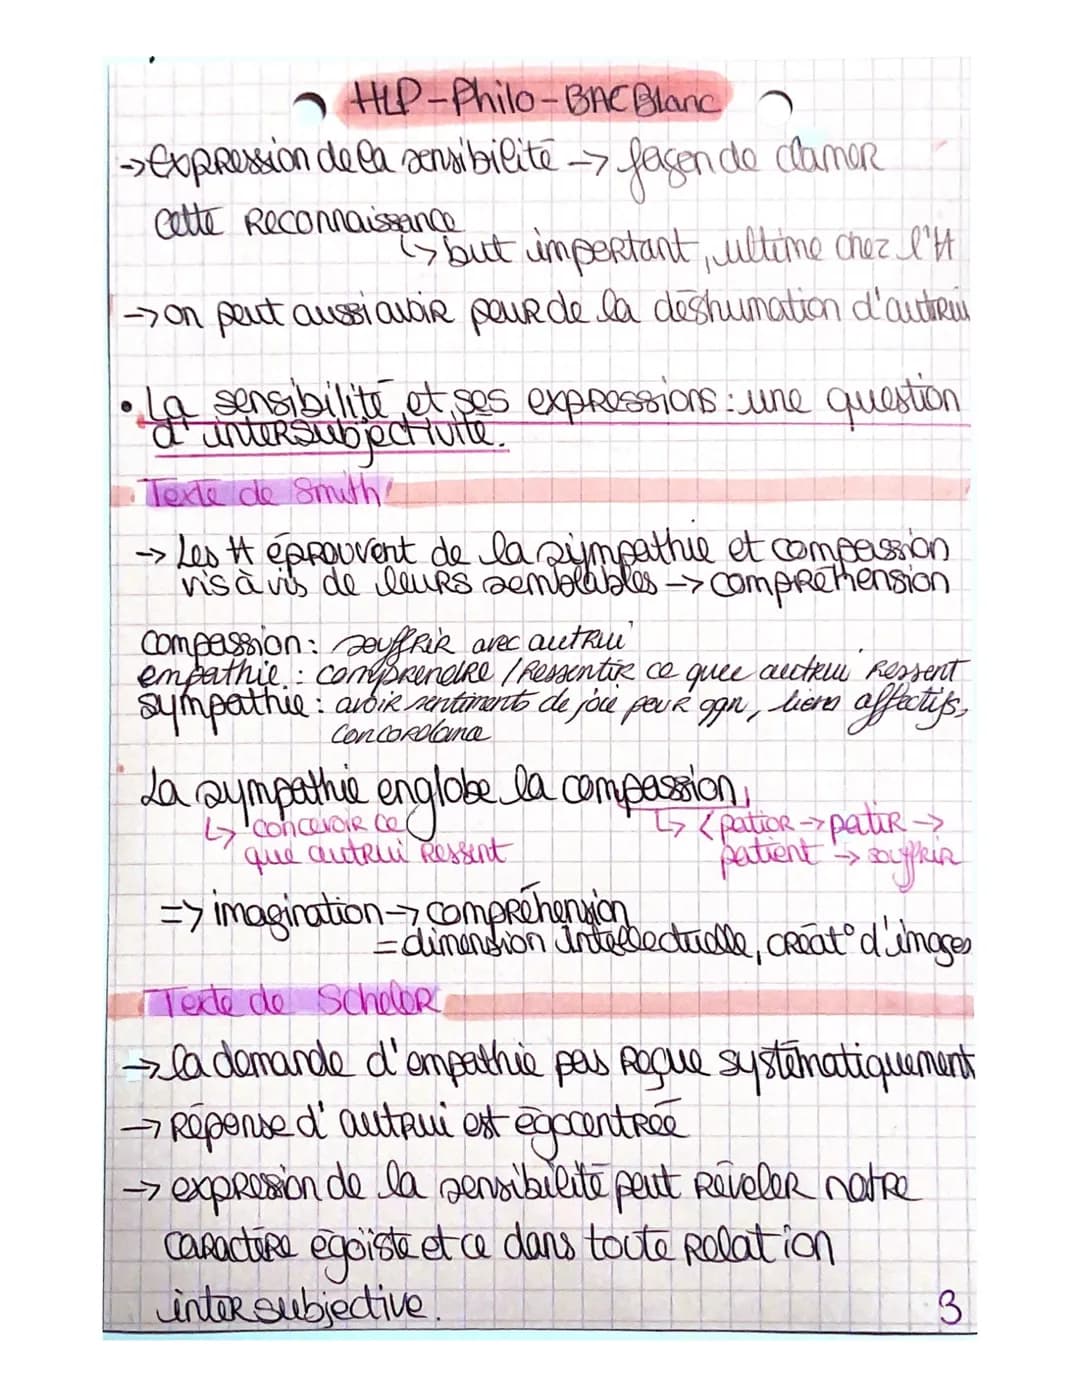 HLP-Philo-BAC Blanc
→Expression de la sensibilité → façon de clamer
cette Reconnaissance
↳ but important, ultime chez l'H
→ on peut aussi avoir peur de la déshumation d'autrui
• La sensibilité et ses expressions : une question
d'intersubjectivité.
Texte de Smith
→ Les H éprouvent de la sympathie et compassion
vis à vis de leurs semblables → compréhension
compassion : souffrir avec autrui
empathie : comprendre / Ressentir ce que autrui Ressent
sympathie : avoir sentiments de joie pour qqn, liens affectifs,
concordance
La sympathie englobe la compassion,
↳ concevoir ce
que autrui Ressent
↳ < patior → patir →
patient → souffrir
=> imagination → compréhension
= dimension intellectuelle, créat° d'images
Texte de Scheler
→ la demande d'empathie pas Reçue systématiquement
→ Réponse d'autrui est égocentrée
→ expression de la sensibilité peut Révéler notre
caractère égoïste et ce dans toute Relation
intersubjective.
3